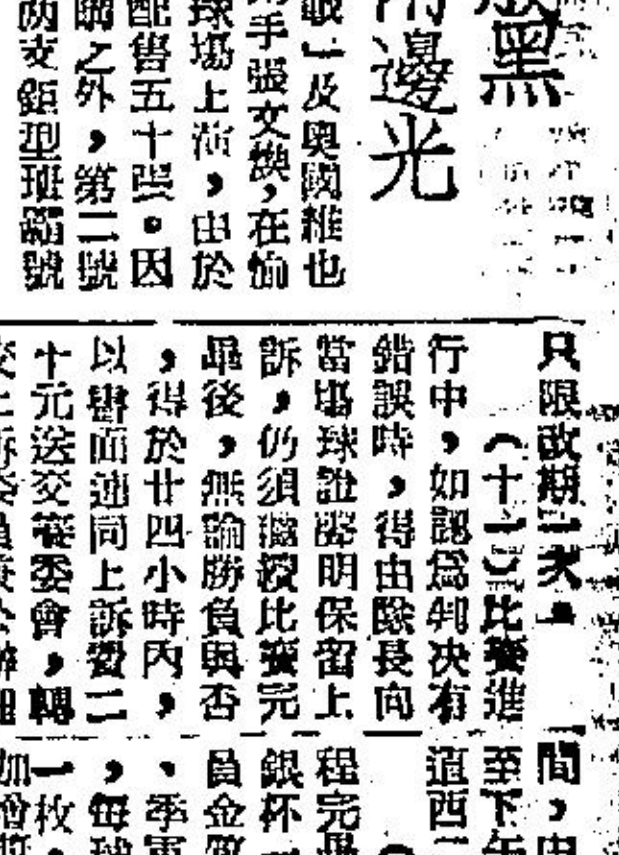 黑
邊光
及奧國維也
手張文煥，在恤
球塲上演，由於
配售五十張。因
之外，第二號
兩支鉅型班霸號
只限改期一次。
（十二）比賽進
行中，如認爲判决有
錯誤時，得由隊長向
當塲球證聲明保留上
訴，仍須繼續比賽完
畢後，無論勝負與否
，得於廿四小時內，
以書面連同上訴費二
十元送交賽委會，轉
間，由
至下午
道西
程完畢
銀杯
員金質
、季軍
，每球
一枚，
加增